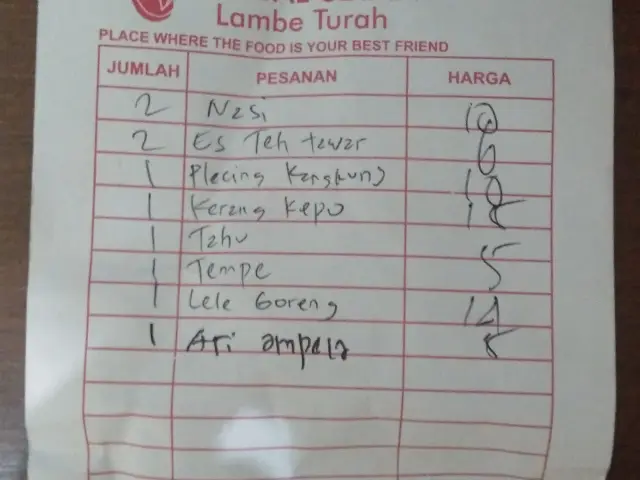 Lambe Turah
PLACE WHERE THE FOOD IS YOUR BEST FRIEND
JUMLAH PESANAN HARGA
2 Nasi 10
2 Es Teh tawar 6
1 Plecing Kangkung 10
1 Kerang Kepo 18
1 Tahu 5
1 Tempe 5
1 Lele Goreng 14
1 Ati ampela 8